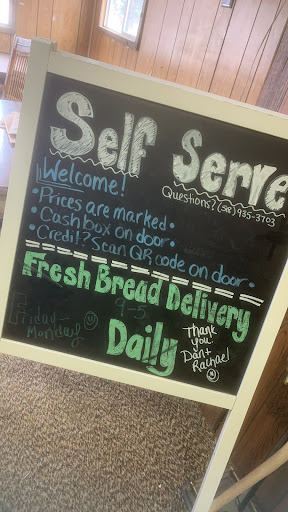 Self Serve
Questions? (518) 935-3703
Welcome!
• Prices are marked •
• Cash box on door •
• Credit? Scan QR code on door •
Fresh Bread Delivery
9-5
Daily
Friday-
Monday
Thank
you
Dan +
Rachael